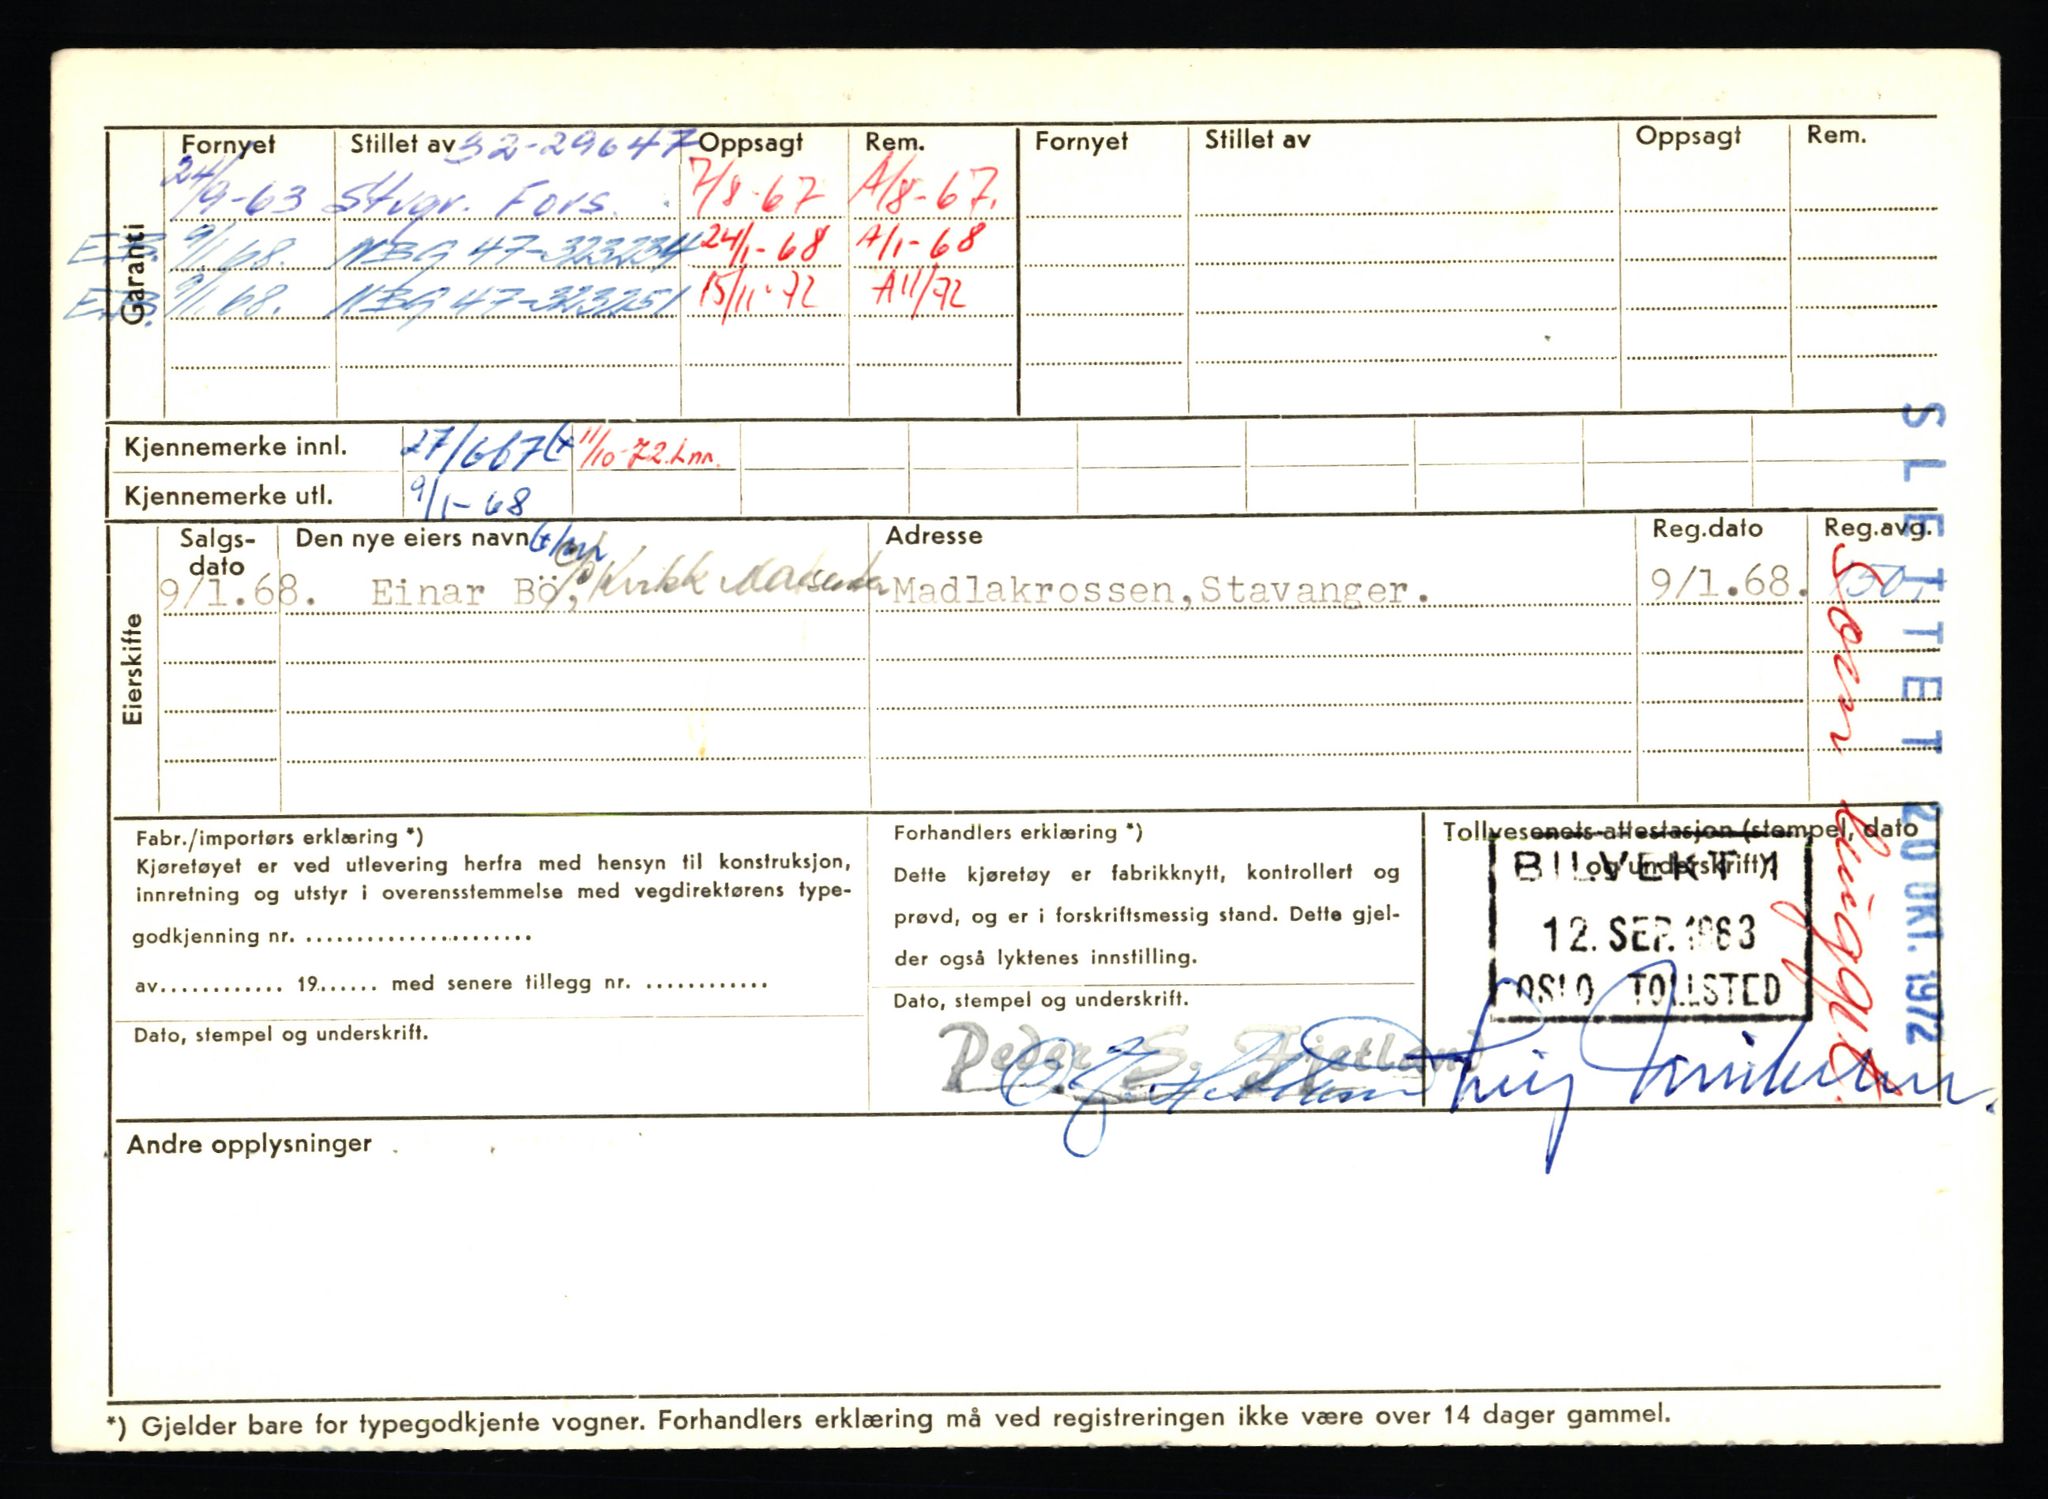 Fornyet Stillet av 32-29647 Oppsagt Rem. Fornyet Stillet av Oppsagt Rem.
24/9-63 Stvgr. Fors. 7/8-67 A/8-67.
E.B. 9/1.68. NBG 47-323234 24/1-68 A/1-68
E.B. 9/1.68. NBG 47-323251 15/11-72 A11/72
Garanti
Kjennemerke innl. 27/667 11/10-72 Lnn.
Kjennemerke utl. 9/1-68
Salgs-
dato Den nye eiers navn Adresse Reg.dato Reg.avg.
9/1.68. Einar Bö, c/o Kvikk Madlakrossen, Stavanger. 9/1.68. 150,-
Eierskifte
SLETTET 20 OKT. 1972
Som hugget.
Fabr./importørs erklæring *)
Kjøretøyet er ved utlevering herfra med hensyn til konstruksjon,
innretning og utstyr i overensstemmelse med vegdirektørens type-
godkjenning nr. ......................
av............ 19...... med senere tillegg nr. ............
Dato, stempel og underskrift.
Forhandlers erklæring *)
Dette kjøretøy er fabrikknytt, kontrollert og
prøvd, og er i forskriftsmessig stand. Dette gjel-
der også lyktenes innstilling.
Dato, stempel og underskrift.
Peder S. Fjetland
Tollvesenets attestasjon (stempel, dato
og underskrift).
BILVEKT 1
12. SEP. 1963
OSLO TOLLSTED
Andre opplysninger
*) Gjelder bare for typegodkjente vogner. Forhandlers erklæring må ved registreringen ikke være over 14 dager gammel.